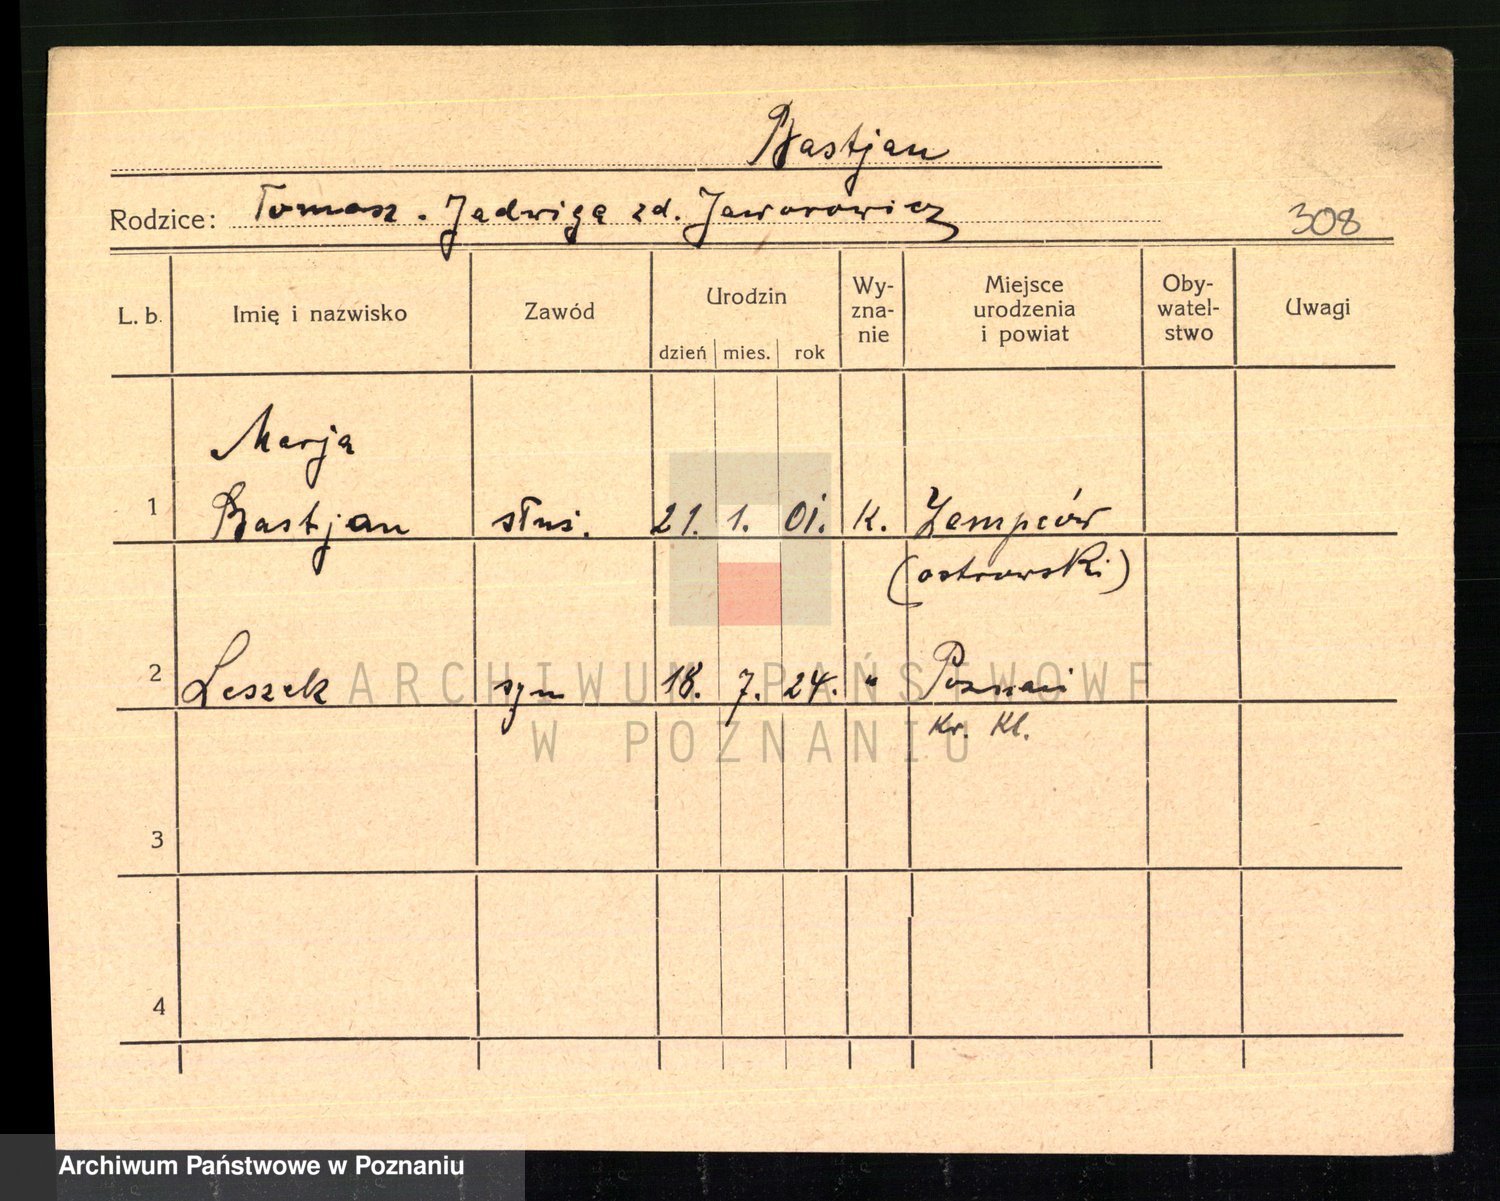 Bastjan
Rodzice: Tomasz. Jadwiga zd. Jaworowicz
308
L. b. Imię i nazwisko Zawód Urodzin dzień mies. rok Wy-zna-nie Miejsce urodzenia i powiat Oby-watel-stwo Uwagi
Marja
1 Bastjan służ. 21. 1. 01. K. Zampców
(ostrowski)
2 Leszek syn 18. 7. 24. " Poznań
Kr. Kl.
3
4
ARCHIWUM PAŃSTWOWE
W POZNANIU
Archiwum Państwowe w Poznaniu